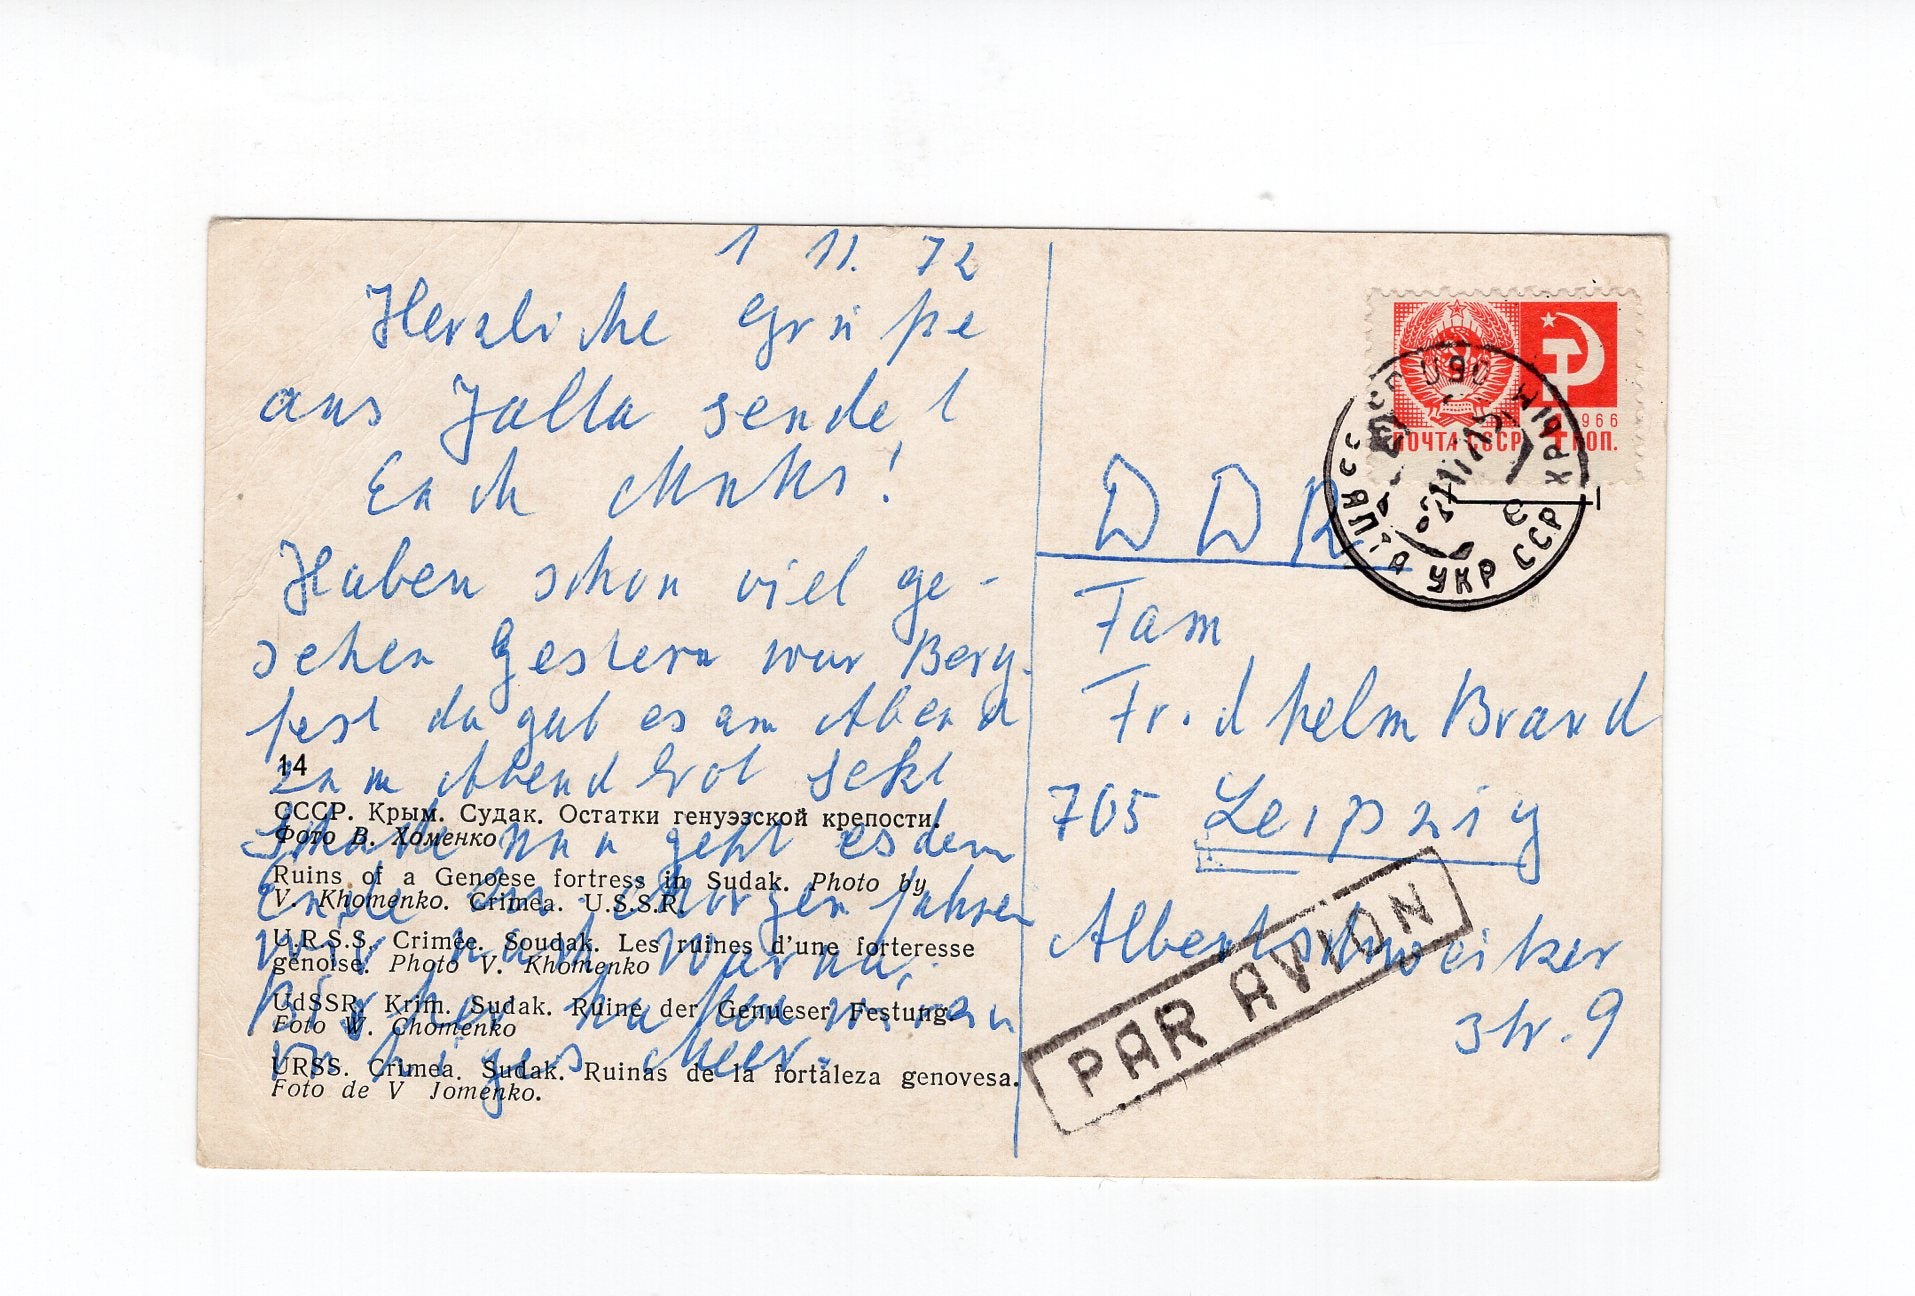 1 11. 72
Herzliche Grüße
aus Jalta sendet
Euch
Haben schon viel ge-
sehen Gestern war Berg-
fest da gab es am Abend
zum Abendbrot Sekt
14
СССР. Крым. Судак. Остатки генуэзской крепости.
Фото В. Хоменко
nun geht es dem
Ruins of a Genoese fortress in Sudak. Photo by
V. Khomenko. Crimea. U.S.S.R.
Ende zu morgen fahren
U.R.S.S. Crimée. Soudak. Les ruines d'une forteresse
génoise. Photo V. Khomenko
wir nach Warna.
UdSSR. Krim. Sudak. Ruine der Genueser Festung.
Foto W. Chomenko
Bisher hatten wir ein
URSS. Crimea. Sudak. Ruinas de la fortaleza genovesa.
Foto de V Jomenko.
ruhiges Meer.
1966
ПОЧТА СССР 4 КОП.
ЯЛТА УКР ССР
КРЫМ
DDR
Fam
Fridhelm Brand
705 Leipzig
Albertschweiker
Str. 9
PAR AVION